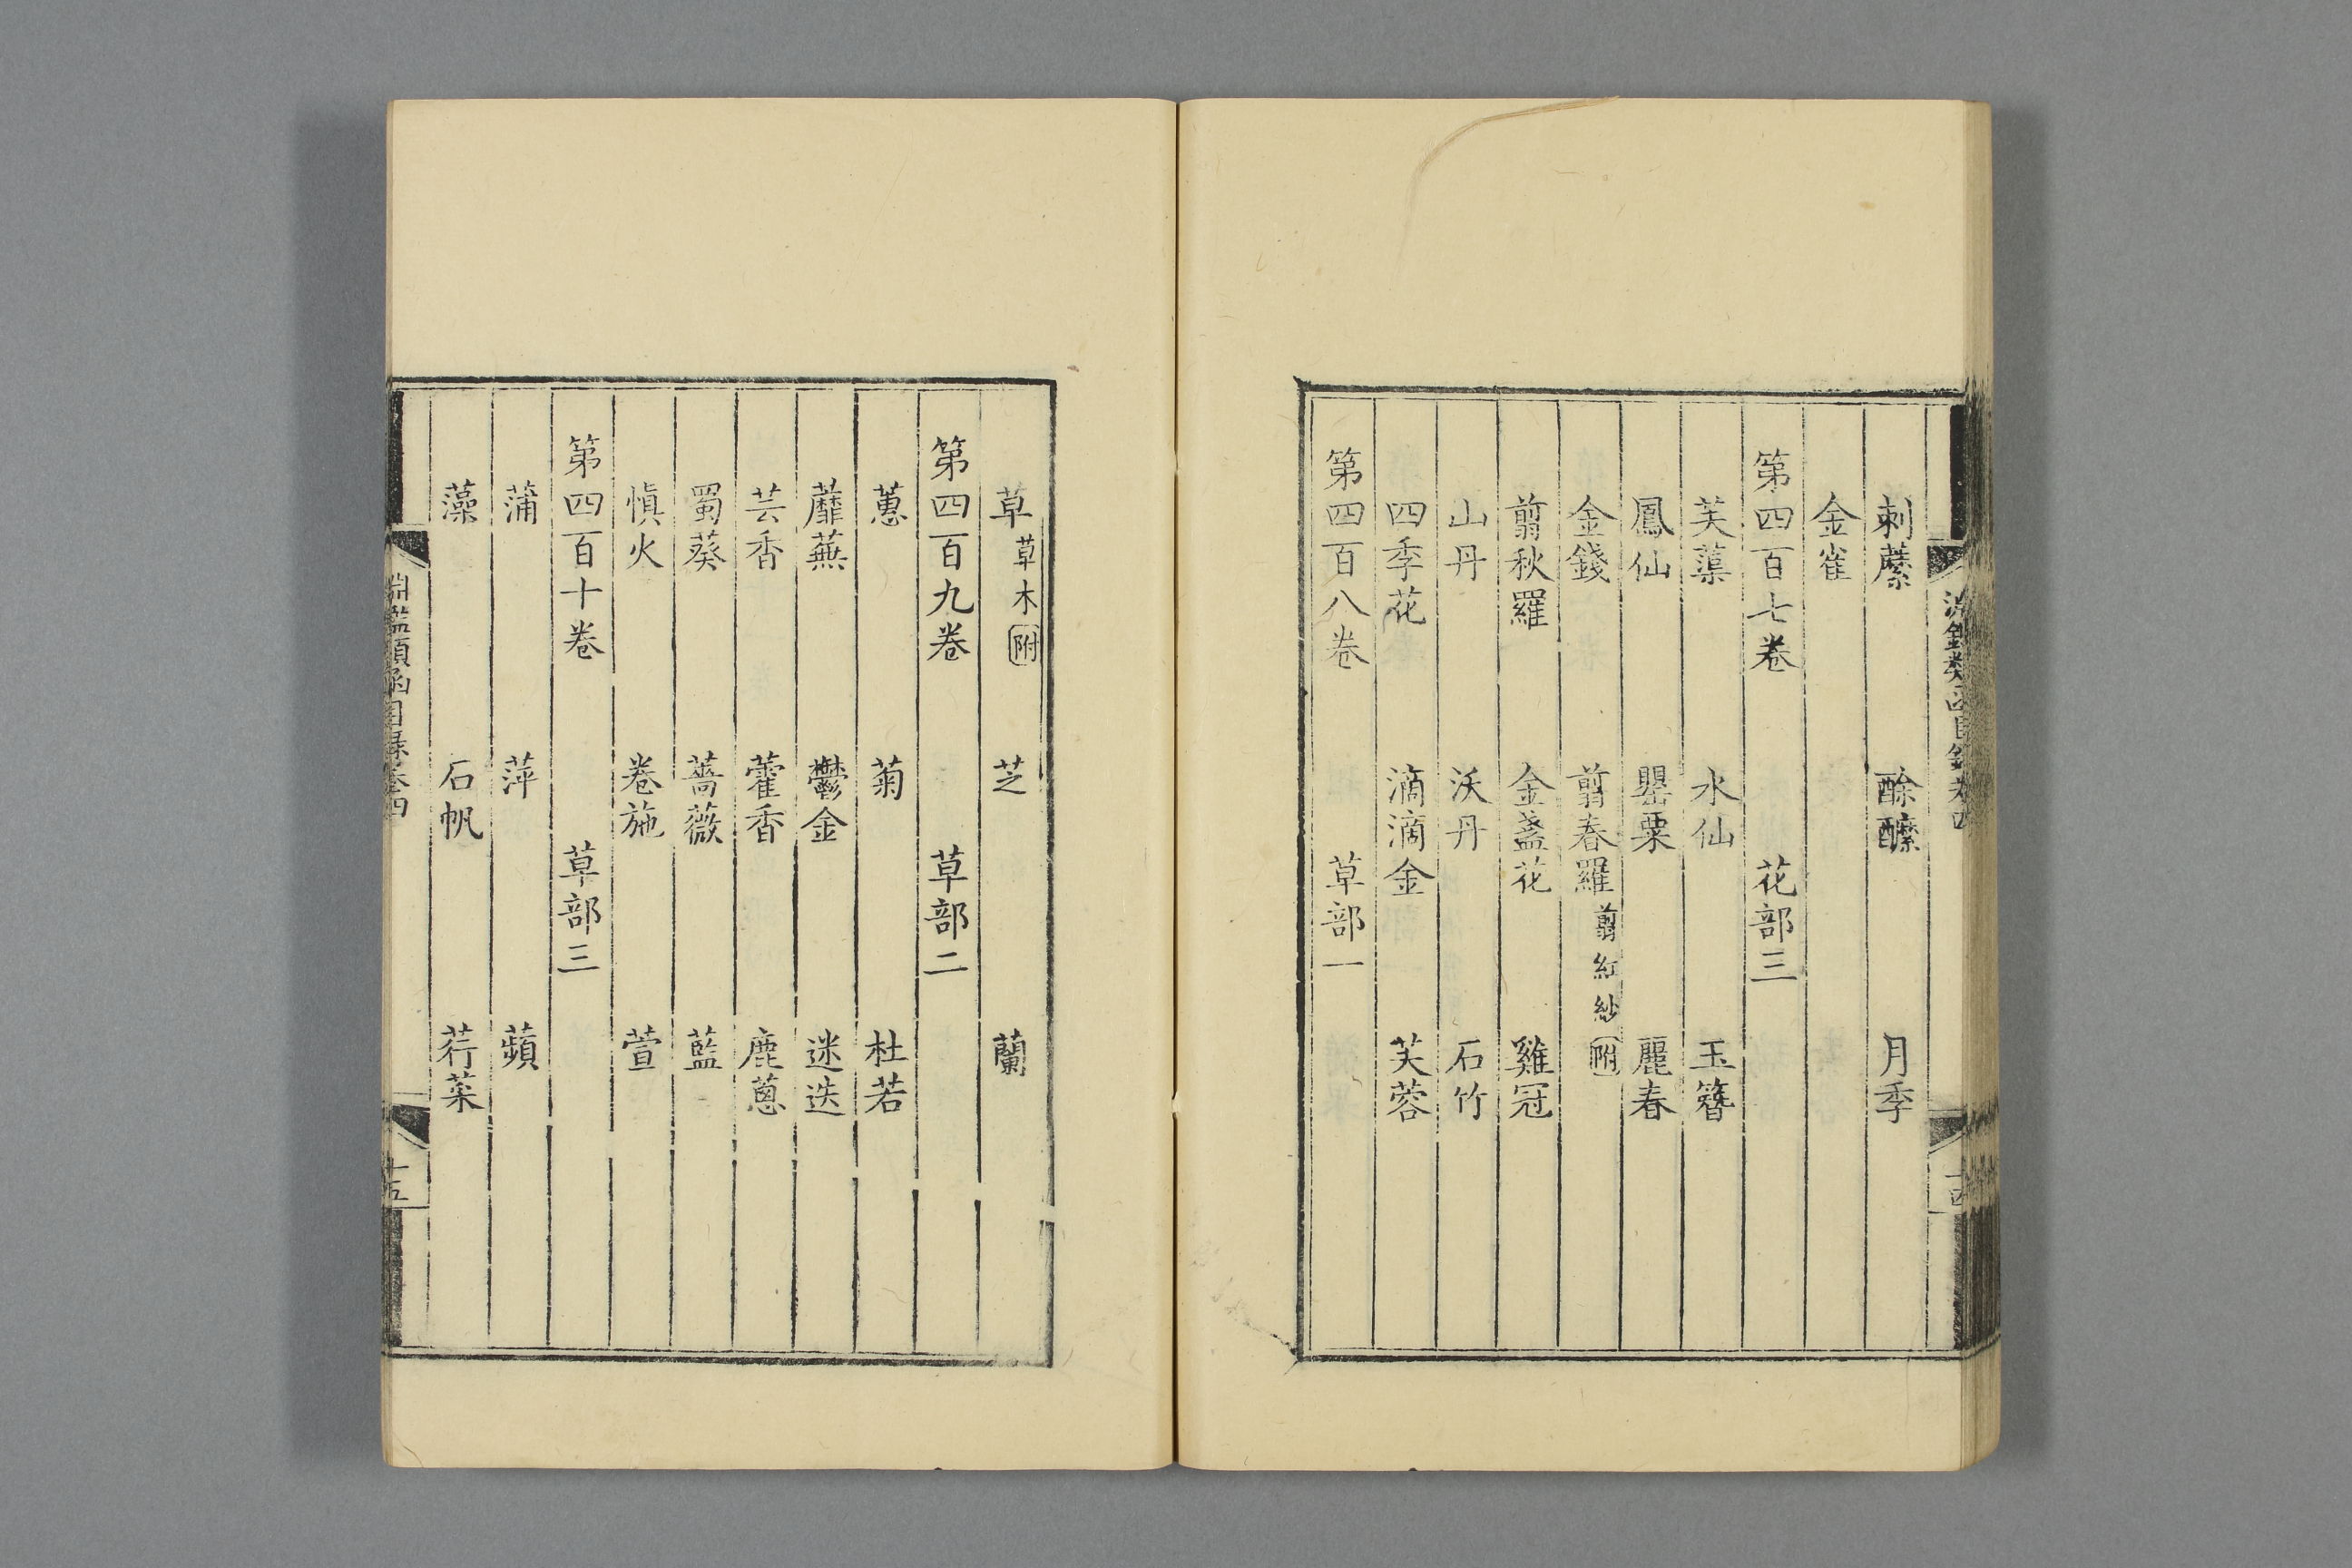 刺蘼　酴醿　月季
金雀
第四百七卷　花部三
芙蕖　水仙　玉簪
鳳仙　罌粟　麗春
金錢　翦春羅 翦紅紗附
翦秋羅　金盞花　雞冠
山丹　沃丹　石竹
四季花　滴滴金　芙蓉
第四百八卷　草部一
草 草木附　芝　蘭
第四百九卷　草部二
蕙　菊　杜若
蘼蕪　鬱金　迷迭
芸香　藿香　鹿蔥
蜀葵　薔薇　藍
慎火　卷施　萱
第四百十卷　草部三
蒲　萍　蘋
藻　石帆　荇菜
淵鑑類函目錄卷四
十五